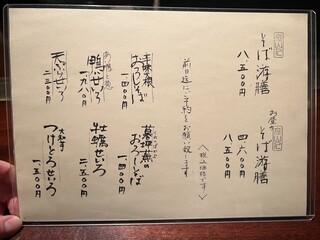 そば游膳
八、五〇〇円
お昼の
そば游膳
四、六〇〇円
八、五〇〇円
前日迄にご予約をお願い致します
〈税込価格です〉
辛味大根
おろしそば
一、四〇〇円
暮坪蕪の
おろしそば
一、四〇〇円
鴨せいろ
一、九八〇円
牡蠣せいろ
二、五〇〇円
天ぷらせいろ
二、三〇〇円
大和芋
つけとろせいろ
一、五〇〇円